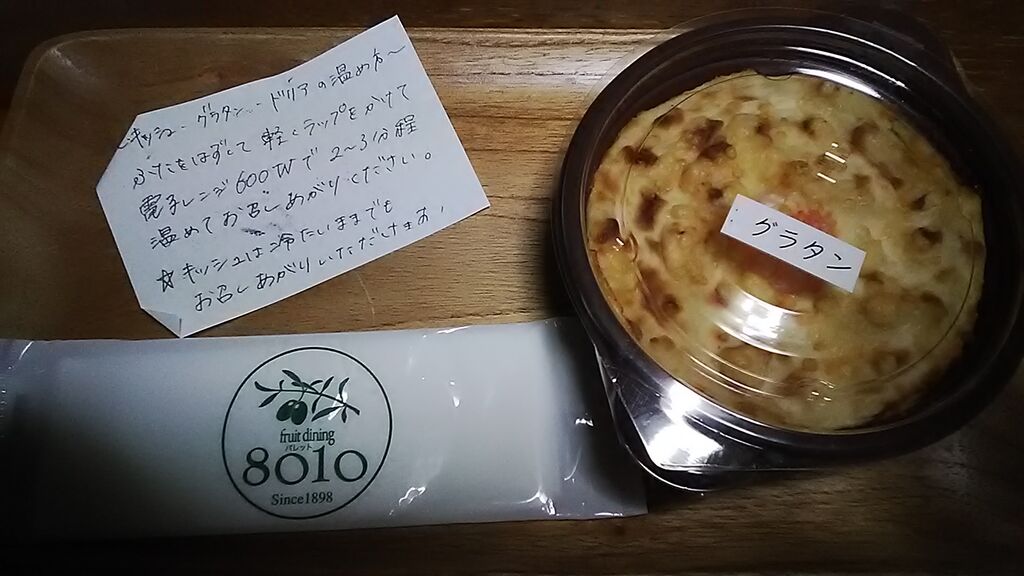 〜キッシュ・グラタン・ドリアの温め方〜
ふたをはずして軽くラップをかけて
電子レンジ600Wで2〜3分程
温めてお召しあがりください。
☆キッシュは冷たいままでも
お召しあがりいただけます。
グラタン
fruit dining
パレット
8010
Since1898